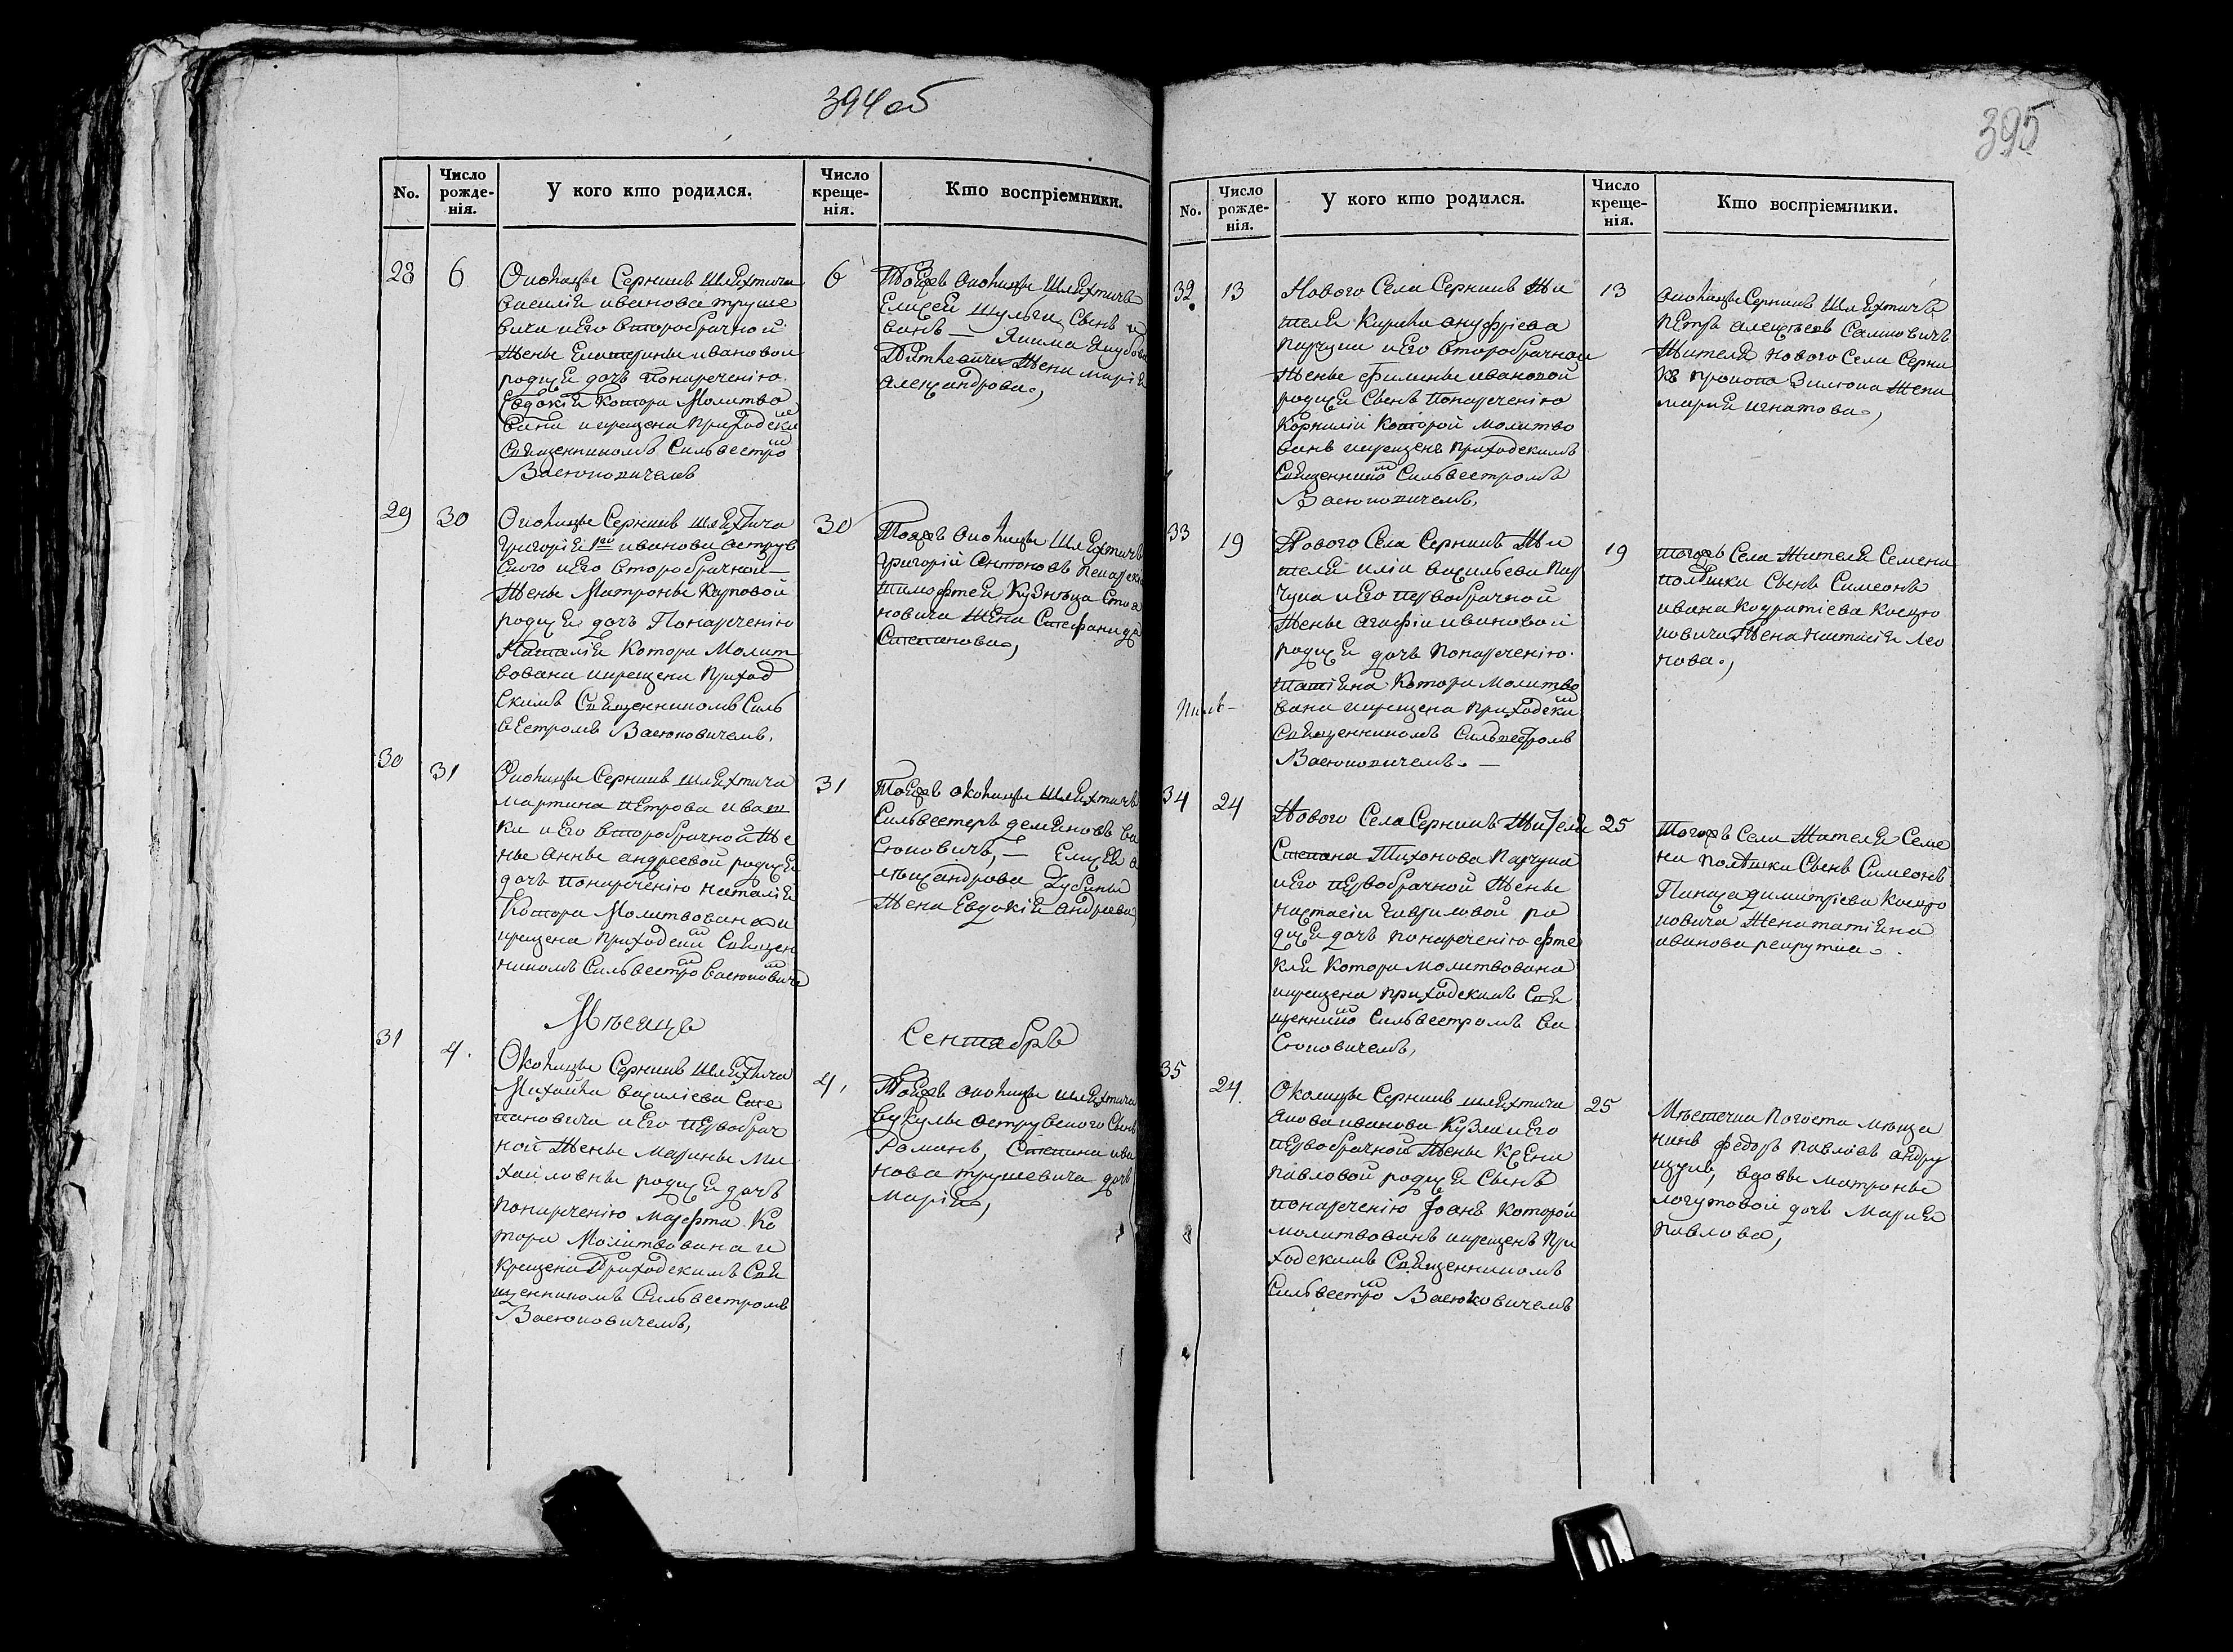 394 об
No.
Число
рожде-
нія.
У кого кто родился.
Число
креще-
нія.
Кто воспріемники.
28
6
Околицы Серникъ Шляхтича
Василія иванова труше
вича и Его второбрачной
Жены Екатерины ивановой
родися дочь Понареченію
Евдокія котора Молитво
вана и крещена Приходски
Священникомъ Сильвестро
Васюковичемъ
6
Тоея Околицы Шляхтичъ
Елисей Шульги Сынъ и
ванъ — Якима Якубова
Жена марія
александрова,
29
30
Околицы Серникъ шляхтича
Григорія иванова остров
ского и Его второбрачной
Жены Матроны Карповой
родися дочь Понареченію
Наталія Котора Молит
вована и крещена Приход
скимъ Священникомъ Силь
вестромъ Васюковичемъ,
30
Тоея околицы Шляхтичъ
Григорій Антоновъ
Тимофтей Кузнеца Степа
новича жена Стефанида
Степанова,
30
31
Околицы Серникъ шляхтича
Мартина Петрова иваш
ки и Его второбрачной Же
ны Анны андреевой родися
дочь Понареченію Наталія
Котора Молитвована и
крещена приходски Священ
никомъ Сильвестро Васюкович
31
Тоея околицы Шляхтичъ
Сильвестеръ демяновъ Ва
сюковичъ, — Елисея а
лександрова Дубины
Жена Евдокія андреева,
Мѣсяцъ
Сентябрь
31
4.
Околицы Серникъ шляхтича
Михайла василіева Сте
пановича и Его первобрач
ной Жены Марины Ми
хайловны родися дочь
понареченію Марфта Ко
тора Молитвована и
крещена Приходскимъ Свя
щенникомъ Сильвестромъ
Васюковичемъ,
4,
Тоея околицы шляхтича
Вукулы островского Сынъ
Романъ, Степана ива
нова трушевича дочь
Марія,
395
No.
Число
рожде-
нія.
У кого кто родился.
Число
креще-
нія.
Кто воспріемники.
32
13
Нового Села Серникъ Жи
теля Кирика ануфріева
Парчука и Его второбрачной
Жены ивановой
родися Сынъ Понареченію
Корнилій Которой молитво
ванъ и крещенъ приходскимъ
Священнико Сильвестромъ
Васюковичемъ,
13
околицы Серникъ Шляхтичъ
Петръ алексѣевъ Семиковичъ
Жителя Нового Села Серни
къ Прокопа Жена
мария игнатова,
33
19
Нового Села Серникъ Жи
теля иліи васильева Пар
чука и Его первобрачной
Жены агафіи ивановой
родися дочь понареченію
татіяна Котора Молитво
вана и крещена Приходски
Священникомъ Сильвестромъ
Васюковичемъ. —
19
тогожъ Села Жителя Семена
Полѣшки Сынъ Симеонъ
ивана Кодратіева Косцю
ковича Жена Настасія Лео
нова,
34
24
Нового Села Серникъ Жителя
Степана Тихонова Парчука
и Его первобрачной Жены
настасіи гавриловой ро
дися дочь понареченію фте
кля Котора Молитвована
и крещена приходскимъ Свя
щеннико Сильвестромъ Ва
сюковичемъ,
25
Тогожъ Села Жителя Семе
на Полѣшки Сынъ Симеонъ
димитріева Косцю
ковича Жена татіяна
иванова рекрутка.
35
24.
Околицы Серникъ шляхтича
якова иванова Кузмы и Его
первобрачной Жены Ксени
Павловой родися Сынъ
понареченію Іоанъ которой
молитвованъ и крещенъ При
ходскимъ Священникомъ
Сильвестро Васюковичемъ
25
Мѣстечка Погоста мѣща
нинъ федоръ павловъ андру
вдовы матроны
логутовой дочь Мария
Павлова,